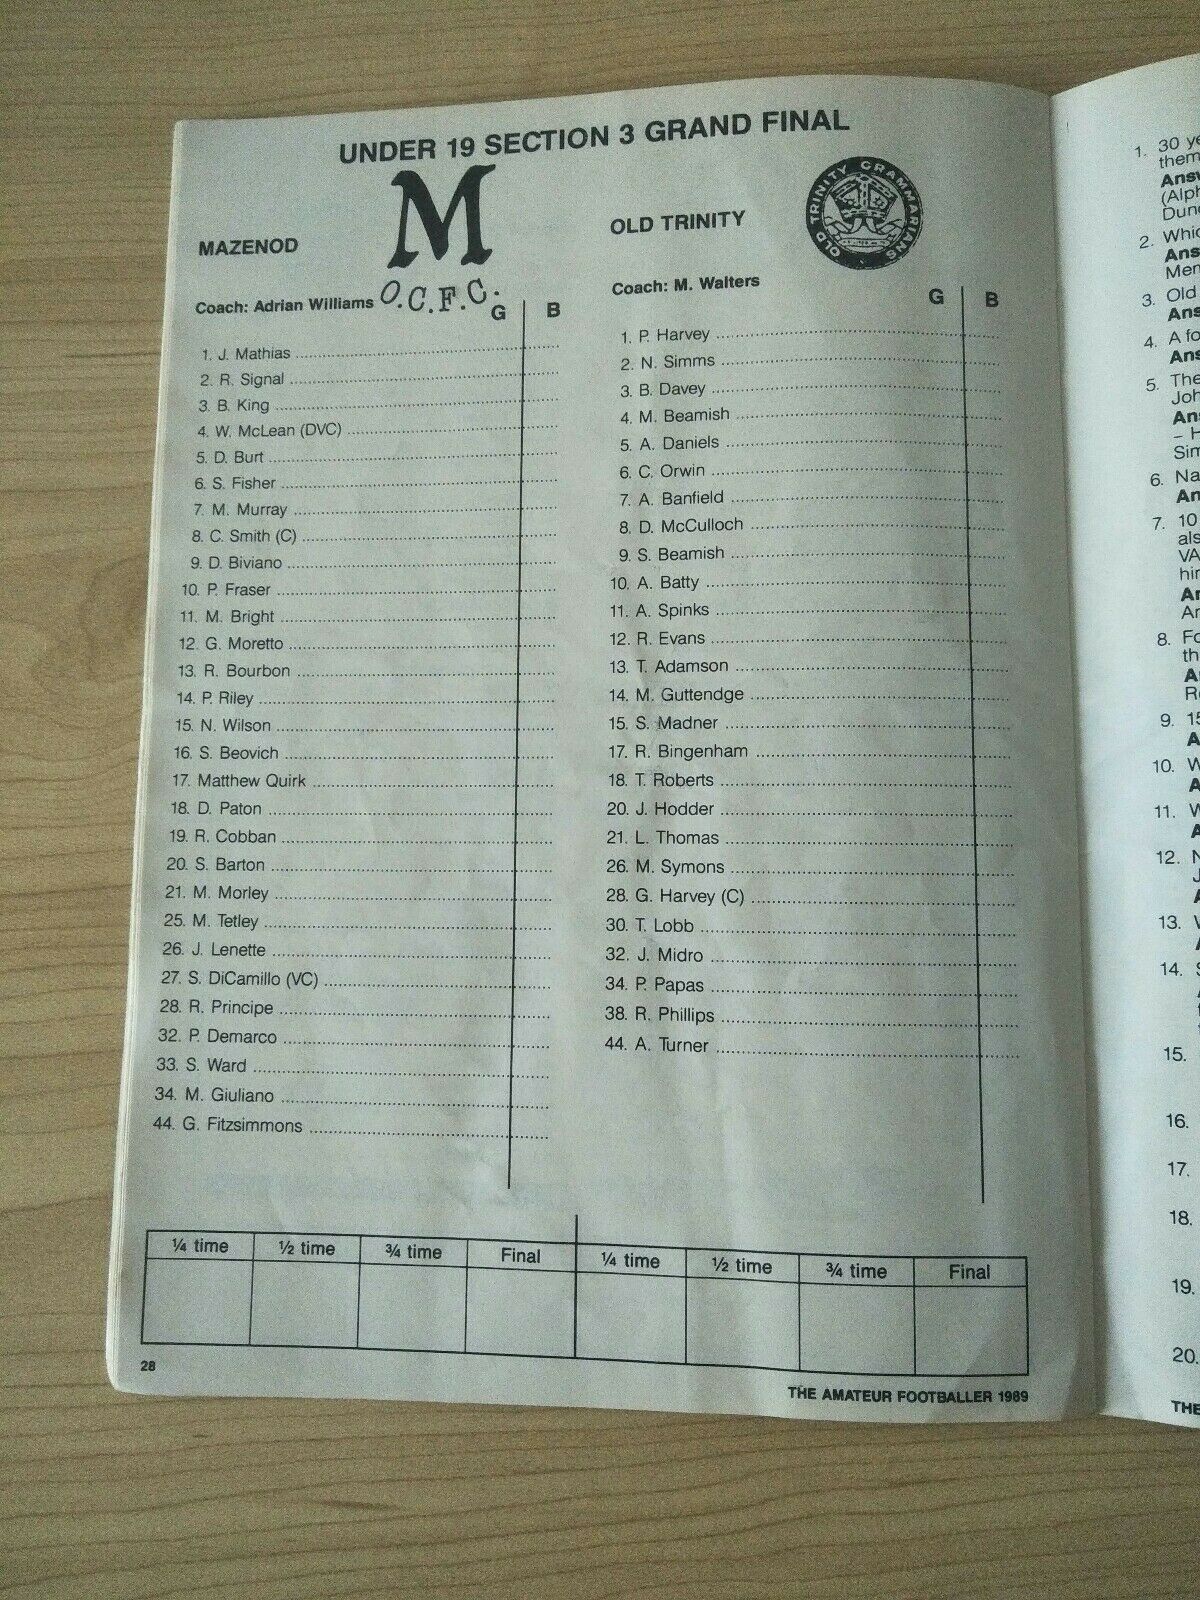 UNDER 19 SECTION 3 GRAND FINAL
MAZENOD
M
O.C.F.C.
Coach: Adrian Williams
G B
1. J. Mathias
2. R. Signal
3. B. King
4. W. McLean (DVC)
5. D. Burt
6. S. Fisher
7. M. Murray
8. C. Smith (C)
9. D. Biviano
10. P. Fraser
11. M. Bright
12. G. Moretto
13. R. Bourbon
14. P. Riley
15. N. Wilson
16. S. Beovich
17. Matthew Quirk
18. D. Paton
19. R. Cobban
20. S. Barton
21. M. Morley
25. M. Tetley
26. J. Lenette
27. S. DiCamillo (VC)
28. R. Principe
32. P. Demarco
33. S. Ward
34. M. Giuliano
44. G. Fitzsimmons
OLD TRINITY
OLD TRINITY GRAMMARIANS
Coach: M. Walters
G B
1. P. Harvey
2. N. Simms
3. B. Davey
4. M. Beamish
5. A. Daniels
6. C. Orwin
7. A. Banfield
8. D. McCulloch
9. S. Beamish
10. A. Batty
11. A. Spinks
12. R. Evans
13. T. Adamson
14. M. Guttendge
15. S. Madner
17. R. Bingenham
18. T. Roberts
20. J. Hodder
21. L. Thomas
26. M. Symons
28. G. Harvey (C)
30. T. Lobb
32. J. Midro
34. P. Papas
38. R. Phillips
44. A. Turner
¼ time ½ time ¾ time Final ¼ time ½ time ¾ time Final
28
THE AMATEUR FOOTBALLER 1989
1. 30
them
2.
3. Old
4. A
5. The
6.
7. 10
8.
9.
10.
11.
12.
13.
14.
15.
16.
17.
18.
19.
20.
THE